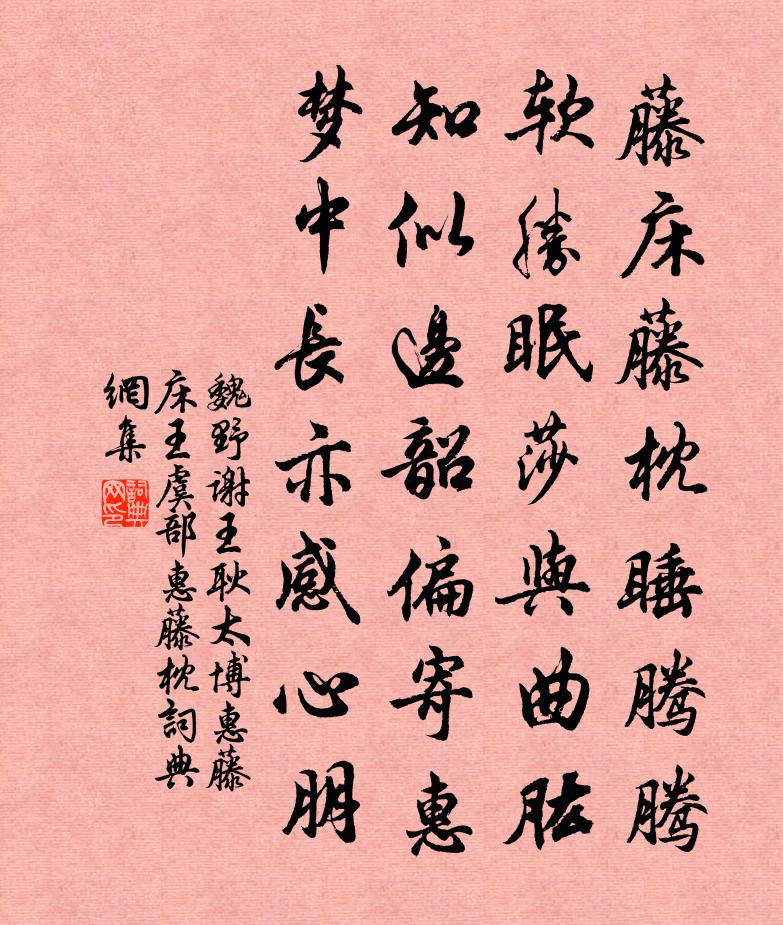 藤床藤枕睡腾腾
软勝眠莎與曲肱
知似邊韶偏寄惠
梦中長亦感心朋
魏野谢王耿太博惠藤
床王虞部惠藤枕詞典
網集
詞典
网印